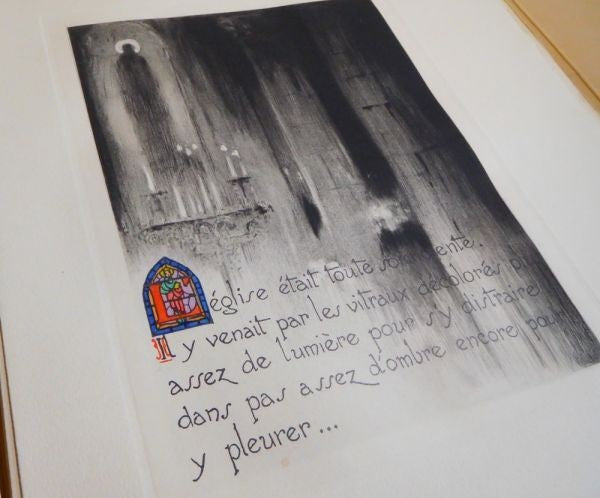 église était toute
Il y venait par les vitraux décolorés
assez de lumière pour s'y distraire
dans pas assez d'ombre encore pour
y pleurer ...